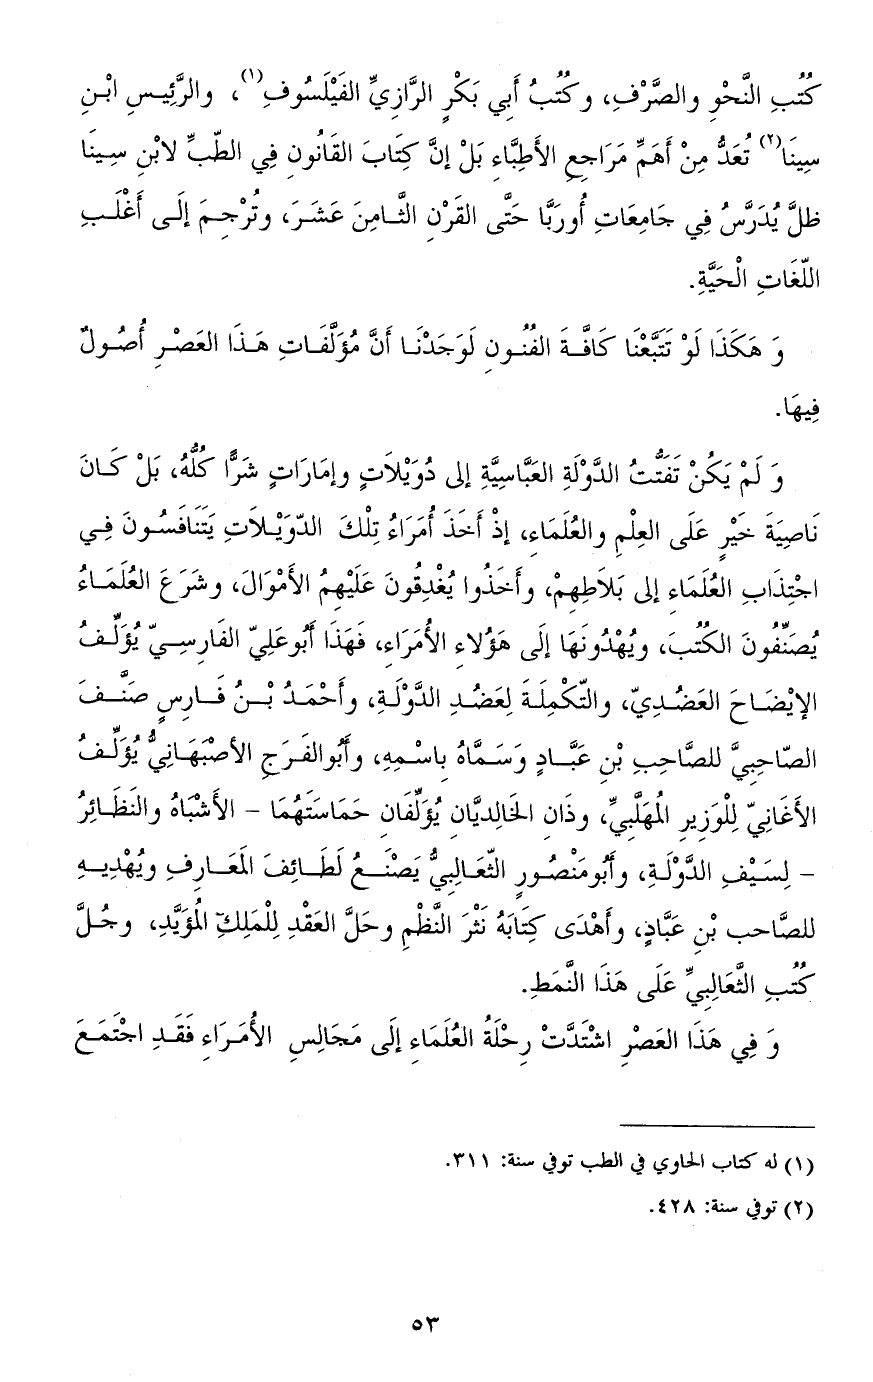 كُتُبِ النَّحْوِ والصَّرْفِ، وكُتُبُ أَبي بَكْرٍ الرَّازِيِّ الفَيْلَسُوفِ(١)، والرَّئِيسِ ابْنِ
سِينَا(٢) تُعَدُّ مِنْ أَهَمِّ مَرَاجِعِ الأَطِبَّاءِ بَلْ إنَّ كِتَابَ القَانُونِ فِي الطِّبِّ لابْنِ سِينَا
ظَلَّ يُدَرَّسُ فِي جَامِعَاتِ أُورَبَّا حَتَّى القَرْنِ الثَّامِنَ عَشَرَ، وتُرْجِمَ إلَى أَغْلَبِ
اللُّغَاتِ الْحَيَّةِ.
وَ هَكَذَا لَوْ تَتَبَّعْنَا كَافَّةَ الفُنُونِ لَوَجَدْنَا أَنَّ مُؤَلَّفَاتِ هَذَا العَصْرِ أُصُولٌ
فِيهَا.
وَ لَمْ يَكُنْ تَفَتُّتُ الدَّوْلَةِ العَبَّاسِيَّةِ إلى دُوَيْلاَتٍ وإمَارَاتٍ شَرًّا كُلُّهُ، بَلْ كَانَ
نَاصِيَةَ خَيْرٍ عَلَى العِلْمِ والعُلَمَاءِ، إذْ أَخَذَ أُمَرَاءُ تِلْكَ الدّوَيْلاَتِ يَتَنَافَسُونَ فِي
اجْتِذَابِ العُلَمَاءِ إلى بَلاَطِهِمْ، وأَخَذُوا يُغْدِقُونَ عَلَيْهِمُ الأَمْوَالَ، وشَرَعَ العُلَمَاءُ
يُصَنِّفُونَ الكُتُبَ، ويُهْدُونَهَا إلَى هَؤُلاءِ الأُمَرَاءِ، فَهَذَا أَبُوعَلِيّ الفَارِسِيّ يُؤَلِّفُ
الإيْضَاحَ العَضُدِيّ، والتّكْمِلَةَ لِعَضُدِ الدَّوْلَةِ، وأَحْمَدُ بْنُ فَارِسٍ صَنَّفَ
الصّاحِبيَّ للصَّاحِبِ بْنِ عَبَّادٍ وَسَمَّاهُ بِاسْمِهِ، وأَبُوالفَرَجِ الأَصْبَهَانِيُّ يُؤَلِّفُ
الأَغَانِيّ لِلْوَزِيرِ المُهَلَّبِيِّ، وذَانِ الخَالِدِيَّانِ يُؤَلِّفَانِ حَمَاسَتَهُمَا - الأَشْبَاهَ والنَظَائِرُ
- لِسَيْفِ الدَّوْلَةِ، وأَبُومَنْصُورٍ الثَّعَالِبيُّ يَصْنَعُ لَطَائِفَ المَعَارِفِ ويُهْدِيهِ
للصَّاحِبِ بْنِ عَبَّادٍ، وأَهْدَى كِتَابَهُ نَثْرَ النَّظْمِ وحَلَّ العَقْدِ لِلْمَلِكِ المُؤَيَّدِ، وجُلَّ
كُتُبِ الثَّعَالِبيِّ عَلَى هَذَا النَّمَطِ.
وَ فِي هَذَا العَصْرِ اشْتَدَّتْ رِحْلَةُ العُلَمَاءِ إلَى مَجَالِسِ الأُمَرَاءِ فَقَدِ اجْتَمَعَ
(١) له كتاب الحاوي في الطب توفي سنة: ٣١١.
(٢) توفي سنة: ٤٢٨.
٥٣